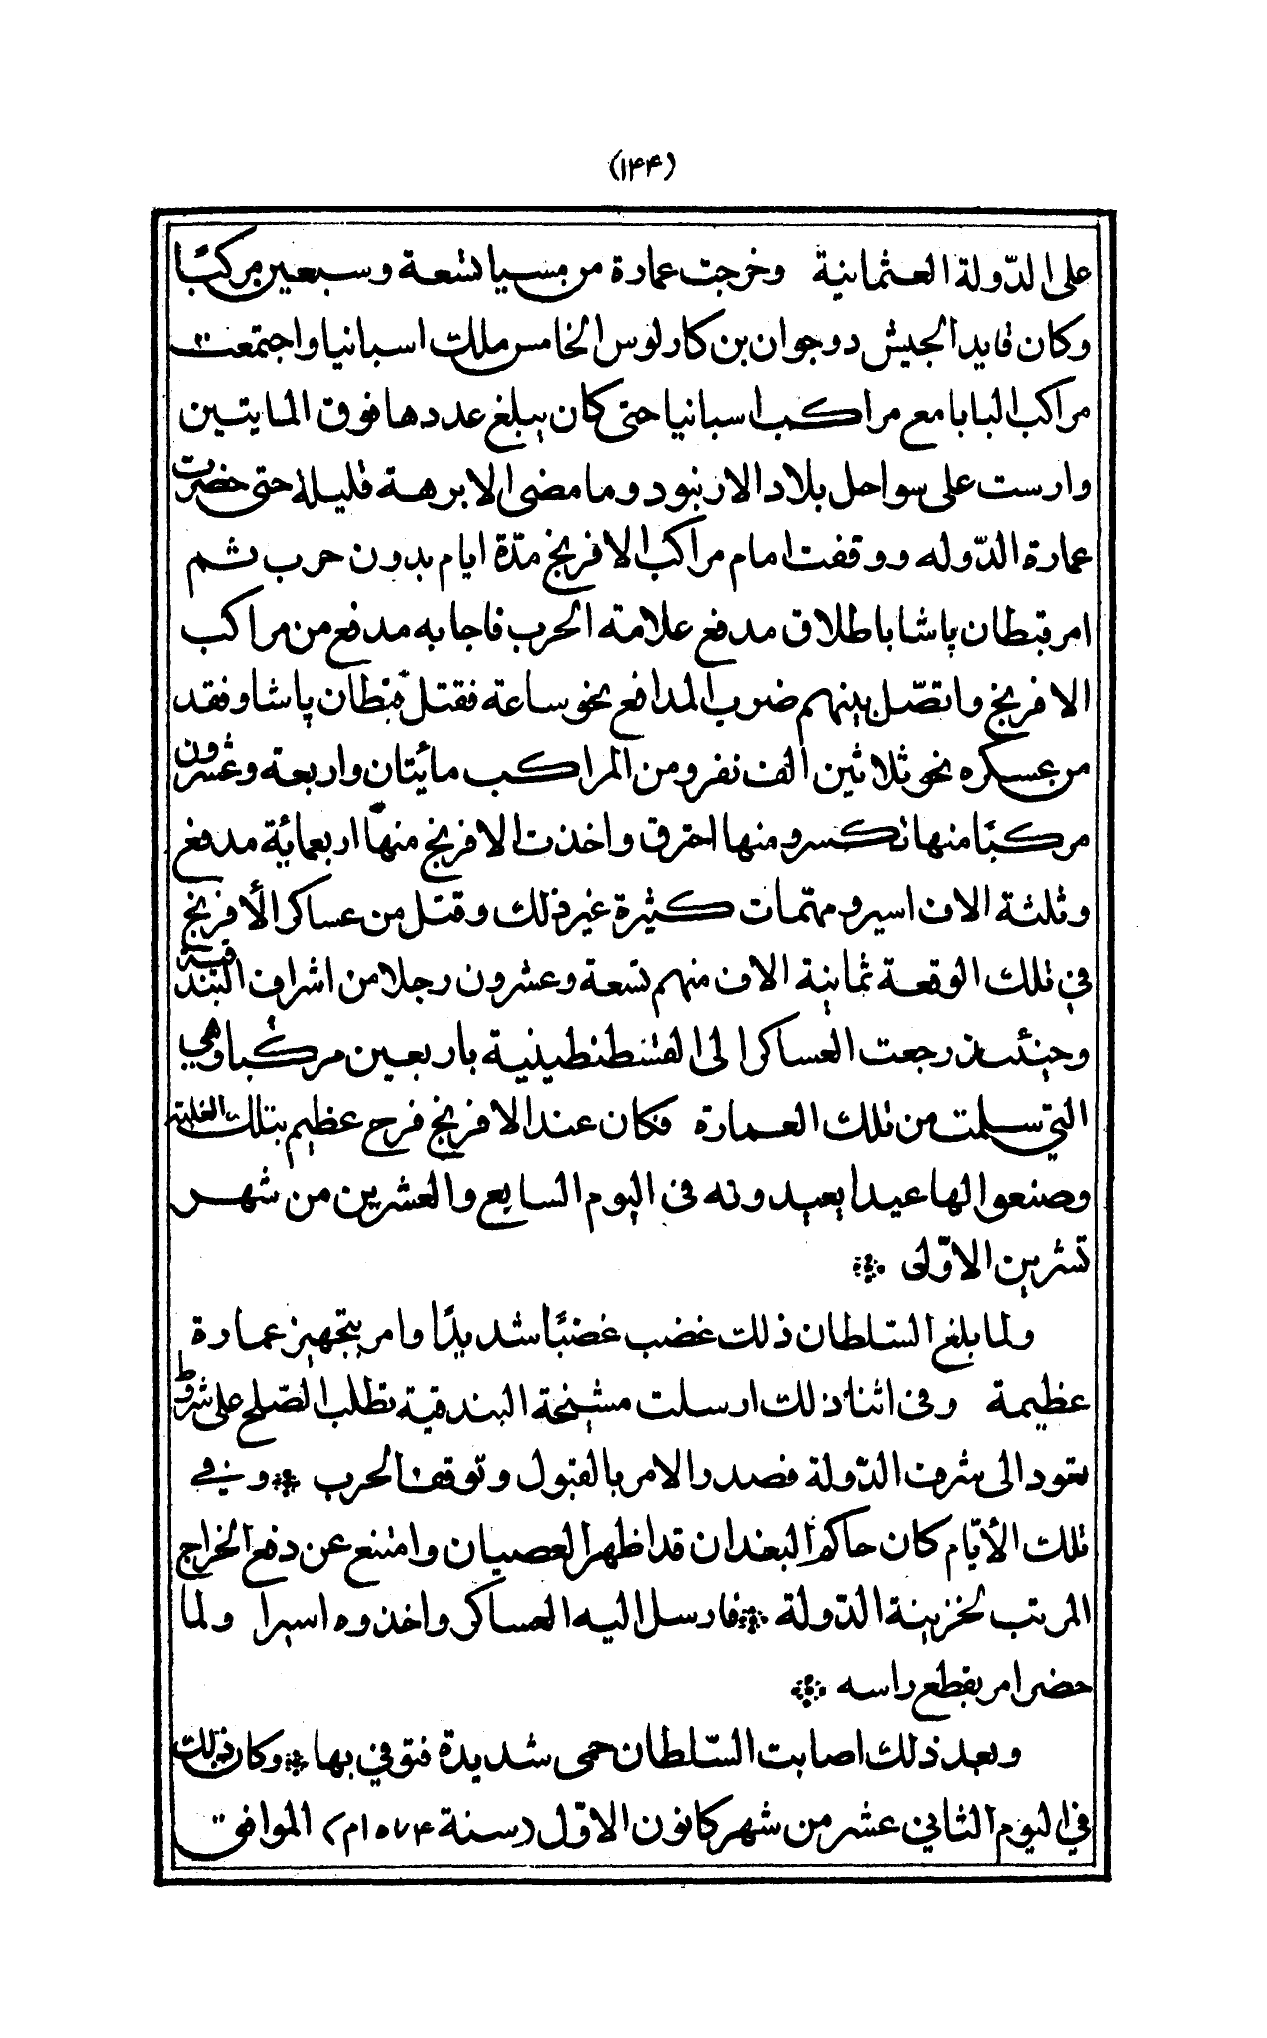 (١٤٤)
على الدّولة العثمانية وخرجت عمارة من مسيا تسعة وسبعين مركبًا
وكان قايد الجيش دوجوان بن كارلوس الخامس ملك اسبانيا واجتمعت
مراكب البابا مع مراكب اسبانيا حتى كان يبلغ عددها فوق المايتين
وارست على سواحل بلاد الارنبود وما مضى الا برهة قليلة حتى حضرت
عمارة الدّوله ووقفت امام مراكب الافرنج مدّة ايام بدون حرب ثم
امر قبطان پاشا باطلاق مدفع علامة الحرب فاجابه مدفع من مراكب
الافرنج واتصّل بينهم ضرب المدافع نحو ساعة فقتل قبطان پاشا وفقد
من عسكره نحو ثلاثين الف نفر ومن المراكب مائيتان واربعة وعشرون
مركبًا منها تكسر ومنها احترق واخذت الافرنج منها اربعماية مدفع
وثلثة الاف اسير ومهتمات كثيرة غير ذلك وقتل من عساكر الأفرنج
في تلك الوقعة ثمانية الاف منهم تسعة وعشرون رجلا من اشراف البندقية
وحينئذ رجعت العساكر الى القسطنطينية باربعين مركبا وهي
التي سلمت من تلك العمارة فكان عند الافرنج فرح عظيم بتلك الغلبة
وصنعوا لها عيدا يعيدونه في اليوم السابع والعشرين من شهر
تشرين الاوّلى ❊
ولما بلغ السّلطان ذلك غضب غضبًا شديدًا وامر بتجهيز عمارة
عظيمة وفي اثناء ذلك ارسلت مشيخة البندقية تطلب الصّلح على شروط
تعود الى شرف الدّولة فصدر الامر بالقبول وتوقف الحرب ❊ وفي
تلك الأيّام كان حاكم البغدان قد اظهر العصيان وامتنع عن دفع الخراج
المرتب لخزينة الدّولة ❊ فارسل اليه العساكر واخذوه اسيرا ولما
حضر امر بقطع راسه ❊
وبعد ذلك اصابت السّلطان حمى شديدة فتوفي بها ❊ وكان ذلك
في اليوم الثاني عشر من شهر كانون الاوّل (سنة ١٥٧٤م) الموافق